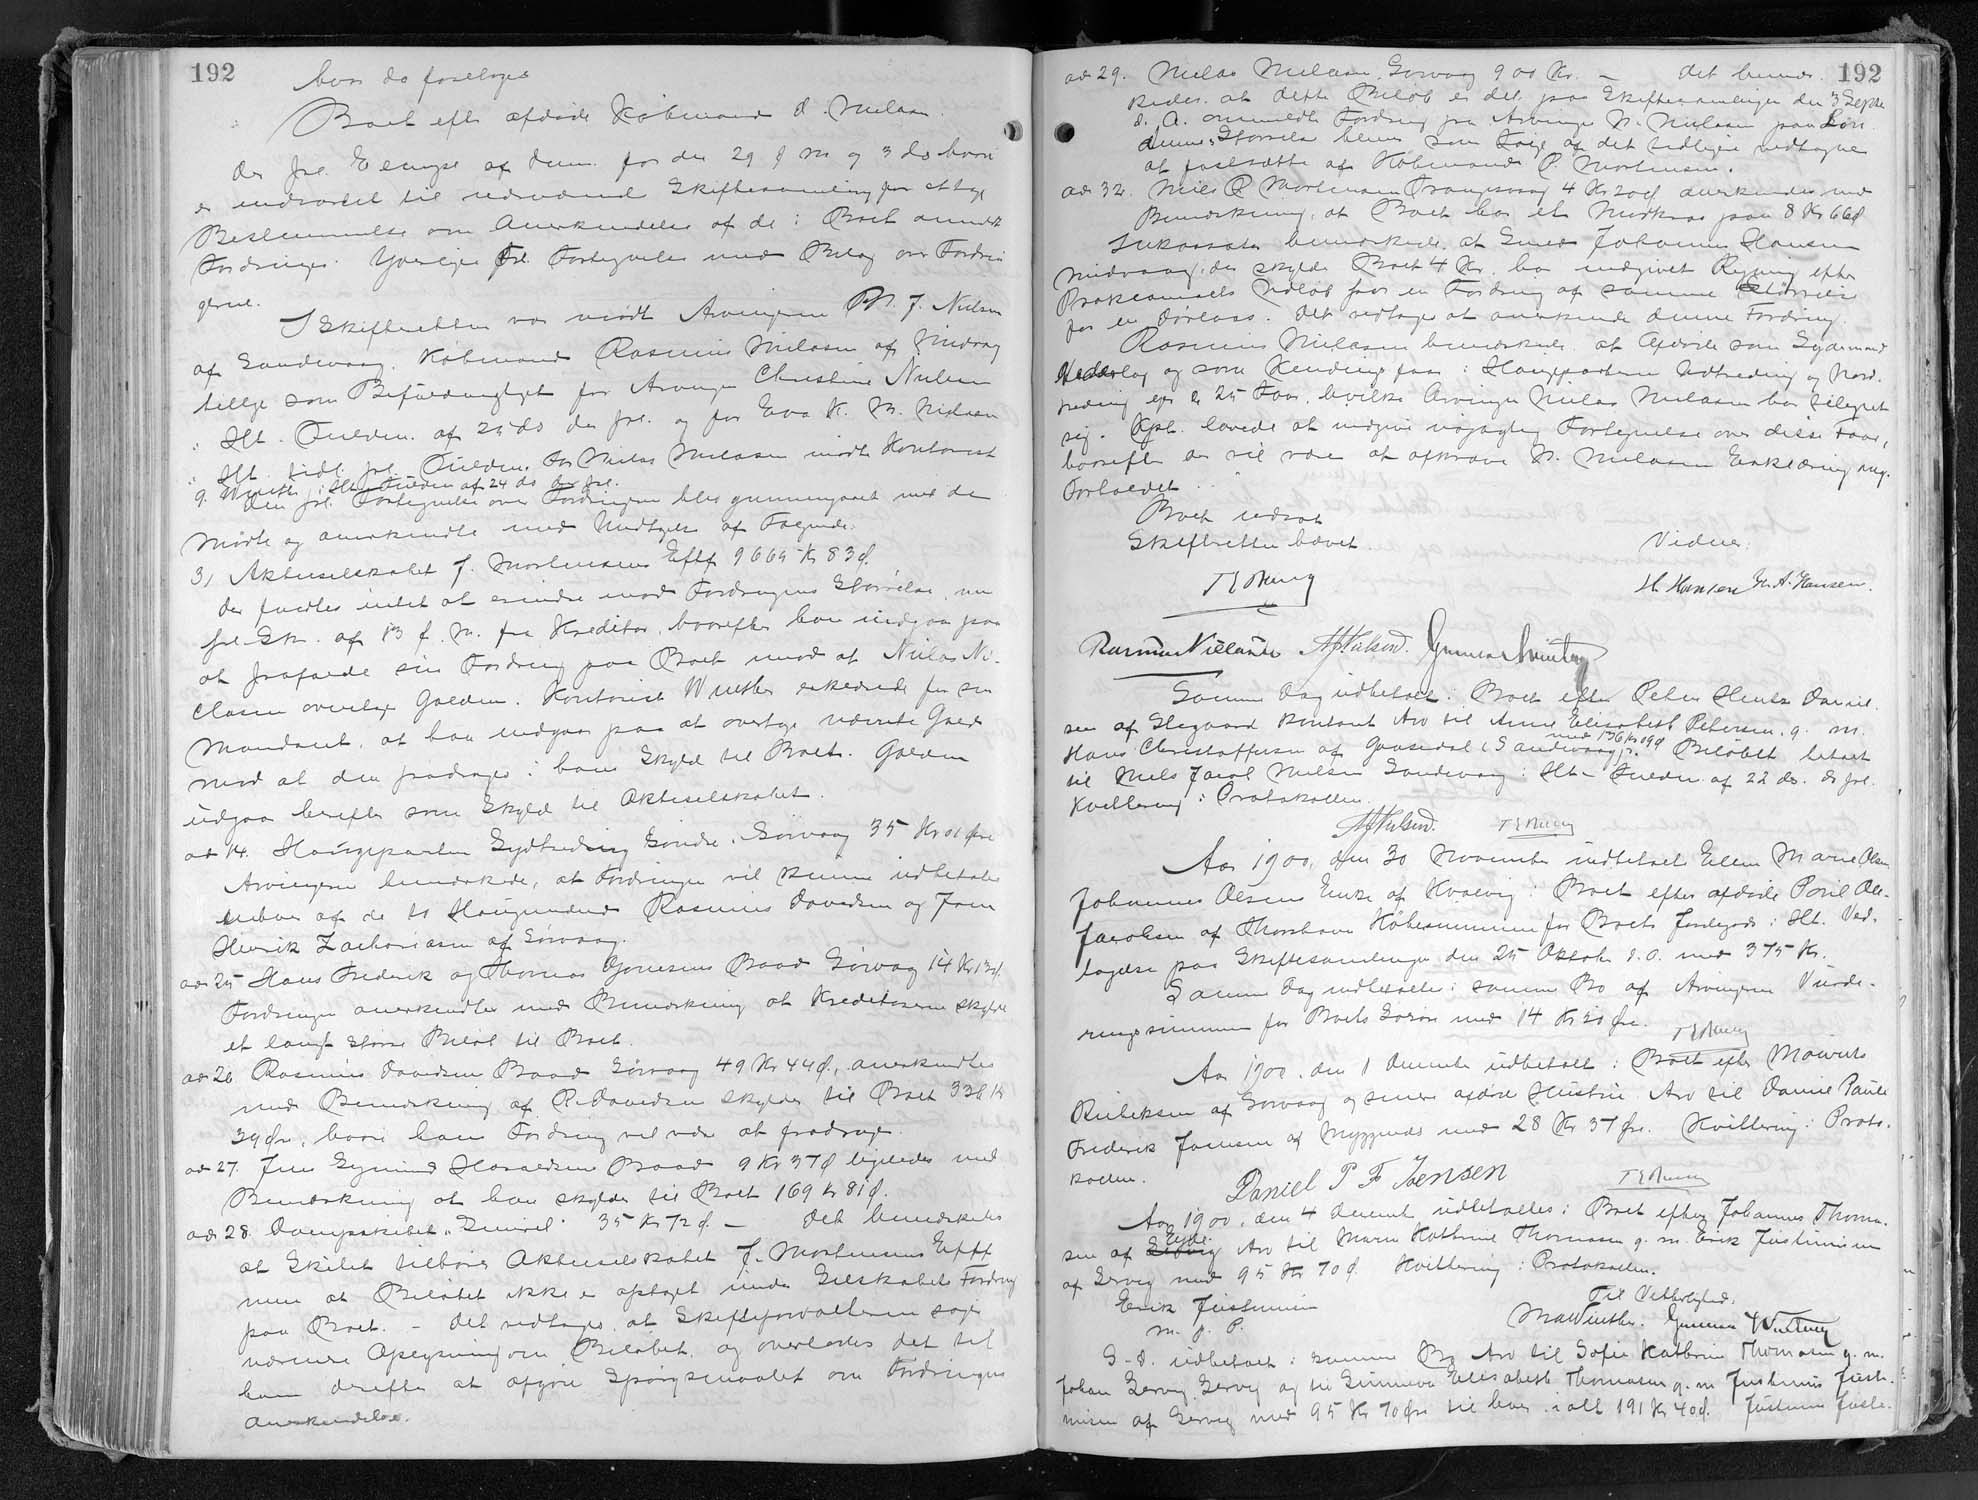 192
hvor da foretoges
Boet efter afdøde Købmand d. Nielsen.
der frl. Exempl af dem for den 29 f. M. og 3 ds hvori
er indvarslet til nærværende Skiftesamling for at tage
Bestemmelse om Anerkendelse af de i Boet anmeldte
Fordringer. Yderligere frl. Fortegnelse med Bilag over Fordrin
gerne.
I Skifteretten var mødt Arvingerne M. J. Nielsen
af Sandevaag, Købmand Rasmus Nielsen af Midvaag
tillige som Befuldmægtiget for Arvingen Christine Nielsen
i Hht. Fuldm. af 25 ds der frl. og for Eva K. M. Nielsen
i Hht. tidl. frl. Fuldm. For Niclas Nielsen mødte Kontorist
G. Winther i Hht. Fuldm af 24 ds der frl.
Den frl. Fortegnelse over Fordringerne blev gennemgaaet med de
Mødte og anerkendte med Undtagelse af Følgende:
3) Aktieselskabet J. Mortensens Eftf 9665 Kr 83 Ø.
Der fandtes intet at erindre mod Fordringens Størrelse, men
frl. Skr. af 13 f. M. fra Kreditor, hvorefter han indgaar paa
at frafalde sin Fordring paa Boet mod at Niclas Ni-
clasen overtager Gælden. Kontorist Winther erklærede for sin
Mandant, at han indgaar paa at overtage nævnte Gæld
mod at den fradrages i hans Skyld til Boet. Gælden
udgaar herefter som Skyld til Aktieselskabet.
ad 14. Haugeparten Sydtrading Søndre, Sørvaag 35 Kr 01 Øre
Arvingerne bemærkede, at Fordringen vil kunne udbetales
enhver af de to Haugmænd Rasmus Davidsen og Joen
Henrik Zachariasen af Sørvaag.
ad 25 Hans Frederik og Thomas Joensens Baad Sørvaag 14 Kr 13 Ø.
Fordringen anerkendtes med Bemærkning at Kreditorerne skylder
et langt større Beløb til Boet.
ad 26 Rasmus Davidsens Baad Sørvaag 49 Kr 44 Ø., anerkendtes
med Bemærkning at R. Davidsen skylder til Boet 338 Kr
39 Øre, hvori hans Fordring vil være at fradrage.
ad 27. Jens Sigmund Haraldsens Baad 9 Kr 37 Ø ligeledes med
Bemærkning at han skylder til Boet 169 Kr 81 Ø.
ad 28. Dampskibet "Smiril" 35 Kr 72 Ø. — Det bemærkedes
at Skibet tilhører Aktieselskabet J. Mortensens Eftf
men at Beløbet ikke er optaget under Selskabets Fordring
paa Boet. – Det vedtoges, at Skifteforvalteren søger
nærmere Oplysning om Beløbet, og overlodes det til
ham derefter at afgøre Spørgsmaalet om Fordringens
Anerkendelse.
192
ad 29. Niclas Nielsen, Sørvaag 900 Kr. – Det bemær
kedes, at dette Beløb er det paa Skiftesamlingen den 3 Septbr
d. A. ommeldte Fordring fra Arvingen N. Nielsen paa Løn
dennes Størrelse bliver som Følge af det tidligere vedtagne
at fastsætte af Købmand P. Mortensen.
ad 32. Niels P. Mortensen Trangisvaag 4 Kr 20 Ø anerkendes med
Bemærkning, at Boet har et Modkrav paa 8 Kr 66 Ø
Inkassator bemærkede, at Smed Johannes Hansen
Midvaag, der skylder Boet 4 Kr. har indgivet Regning efter
Proklamaets Udløb for en Fordring af samme Størrelse
for en Dørlaas. Det vedtoges at anerkende denne Fordring.
Rasmus Nielsen bemærkede, at Afdøde som
og som i Haugeparterne Udtreding og Nord-
treding ejer 25 Faar, hvilke Arvingen Niclas Nielsen har tilegnet
sig. Kpt. lovede at indgive nøjagtig Fortegnelse over disse Faar,
hvorefter der vil være at afkræve N. Nielsen Erklæring ang.
Forholdet.
Boet udsat
Skifteretten hævet.
Vidner:
H. Hansen H. A. Hansen.
Rasmus Nielsen MJNielsen. Gunnar Winther
Samme Dag udbetalt i Boet efter Peter Hentz Daniel-
sen af Slegaard Kontant Arv til Anne Elisabeth Petersen, g. m.
Hans Christoffersen af Gaasedal i Sandevaag
med 136 Kr 09 Ø
Beløbet betalt
til Niels Jacob Nielsen Sandevaag i Hht. Fuldm. af 22 ds. der frl.
Kvittering i Protokollen.
MJNielsen.
Aar 1900, den 30 November indbetalt Ellen Marie Olsen
Johannes Olsens Enke af Kvalvig i Boet efter afdøde Poul Ole-
Jacobsen af Thorshavn Købesummen for Boets Jordegods i Hht. Ved-
tagelse paa Skiftesamlingen den 25 Oktober d. A. med 375 Kr.
Samme Dag indbetaltes i samme Bo af Arvingerne Vurde-
ringssummen for Boets Løsøre med 14 Kr 20 Øre.
Aar 1900, den 1 December udbetalt i Boet efter Maurits
af Sørvaag og senere afdøde Hustru Arv til Daniel Paule
Frederik Jensen af Myggenæs med 28 Kr 37 Øre. Kvittering i Proto-
kollen.
Daniel P F Jensen
Aar 1900, den 4 December udbetaltes i Boet efter Johannes Thoma-
sen af
Ejde
Arv til Maren Kathrine Thomasen g. m. Erik Justinusen
af Gerveg med 95 Kr 70 Ø. Kvittering i Protokollen.
Erik Justinusen
m. f. P.
Til Vitterlighed.
MWinther. Gunnar Winther
S. D. udbetalt i samme Bo Arv til Sofie Kathrine Thomasen g. m.
Johan Gerveg, Gerveg og til Sunneva Elisabeth Thomasen g. m. Justinus Justi-
nusen af Gerveg med 95 Kr 70 Øre til hver, i alt 191 Kr 40 Ø. Justinus Justi-